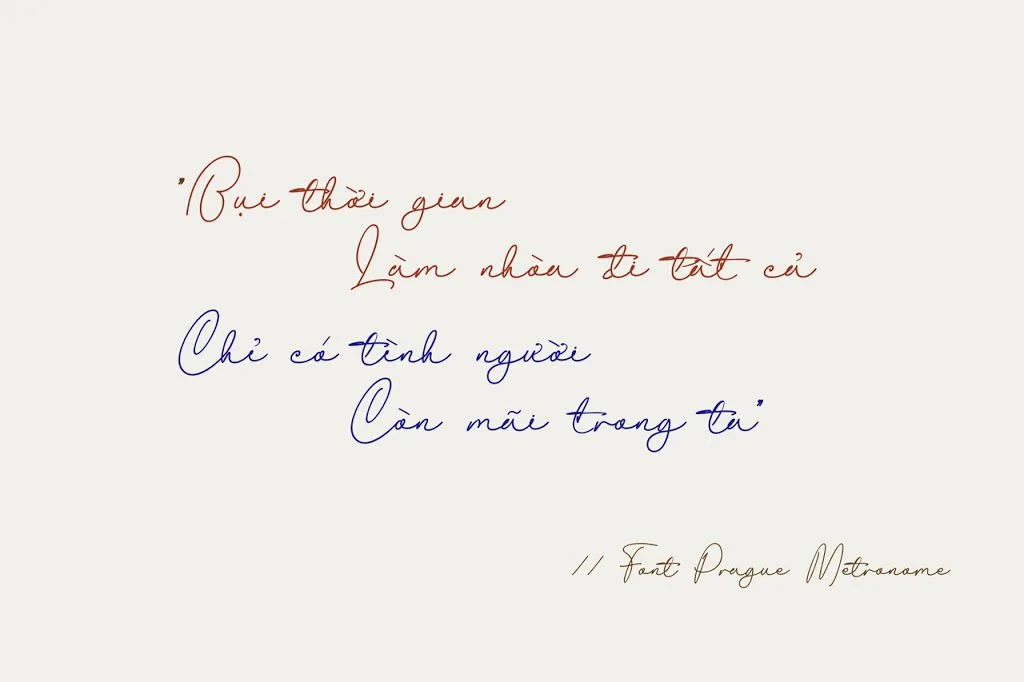 "Bụi thời gian
Làm nhòa đi tất cả
Chỉ có tình người
Còn mãi trong ta"
// Font Prague Metronome